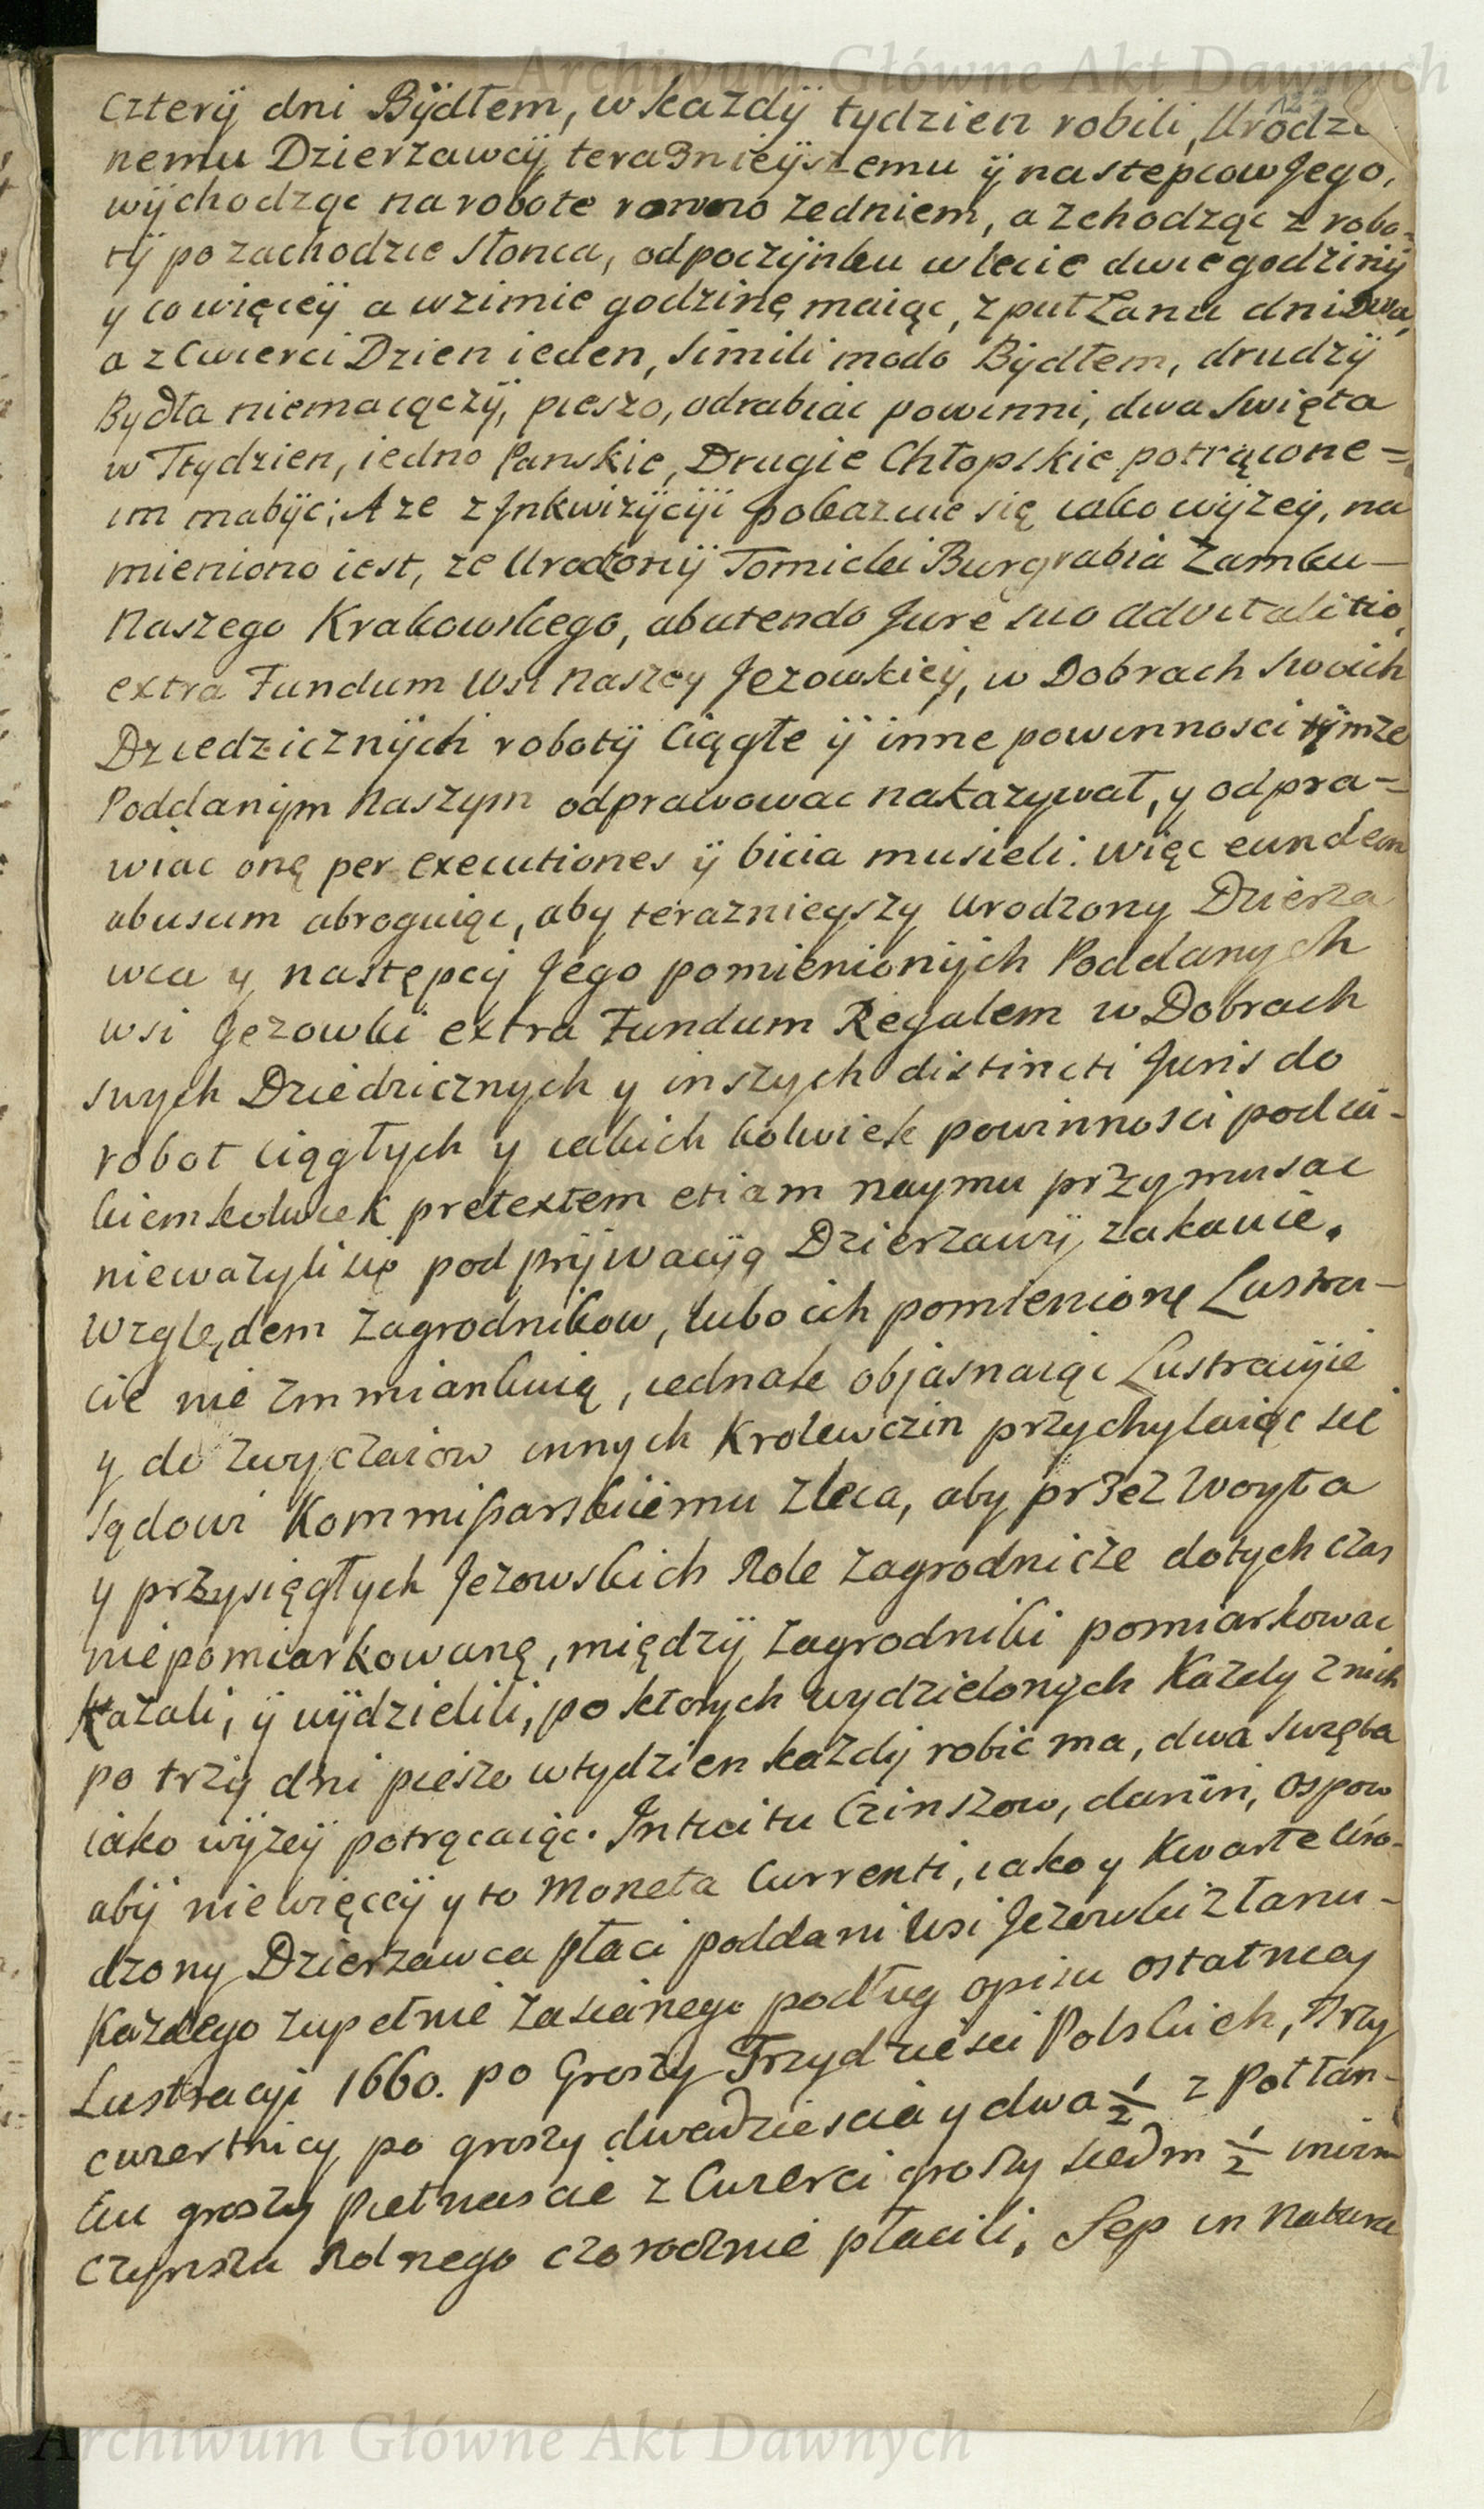 Archiwum Główne Akt Dawnych
czterÿ dni Bÿdłem, w kazdÿ tydzien robili, Urodzo
nemu Dzierzawcÿ teraznieÿszemu ÿ nastepcow Jego,
wÿchodząc na robote rowno zedniem, a zchodząc z robo-
tÿ po zachodzie słonca, odpoczÿnku w lecie dwie godzinÿ
y co więceÿ a wzimie godzinę maiąc, z puł Łanu dni dwa,
a z Cwierci Dzien ieden, simili modo Bÿdłem, drudzÿ
Bydła niemaiączÿ, pieszo, odrabiac powinni, dwa Swięta
w Tÿdzien, iedno Panskie, Drugie Chłopskie potrącone =
im mabÿc; A ze z Inkwizÿcÿi pokazuie się iako wÿzeÿ, na
mieniono iest, ze Urodzonÿ Tomicki Burgrabia Zamku -
Naszego Krakowskiego, abutendo Jure suo advitalitio,
extra Fundum Wsi Naszey Jezowskieÿ, w Dobrach Swoich
Dziedzicznÿch robotÿ Ciągłe ÿ inne powinnosci tÿmze
Poddanÿm Naszym odprawowac nakazywał, y odpra=
wiac onę per executiones ÿ bicia musieli. więc eundem
abusum abroguiąc, aby teraznieyszy Urodzony Dzierza
wca y następcÿ Jego pomienionÿch Poddanych
wsi Jezowki extra Fundum Regalem w Dobrach
swych Dziedzicznych y inszych distincti Juris do
robot ciągłych y iakich kolwiek powinnosci pod ia-
kiemkolwiek pretextem etiam naymu przymusac
niewazyli się pod prÿwacÿą Dzierzawÿ, zakauie.
Względem Zagrodnikow, lubo ich pomienionę Lustra-
cie nie zmmiankuią, iednak objasnaiąc Lustracÿie
y do zwyczaiow innych Krolewczin przychylaiąc sie
sądowi Kommissarskiemu zleca, aby przez Woyta
y przysięgłych Jezowskich Role zagrodnicze dotych czas
niepomiarkowanę, międzÿ zagrodniki pomiarkowac
Kazali, ÿ wÿdzielili, po ktorych wydzielonych Kazdy znich
po trzy dni pieszo wtydzien kazdÿ robic ma, dwa swęta
iako wÿzeÿ potrącaiąc. Intuitu Czinszow, danin, Ospow
abÿ niewięceÿ y to Moneta Currenti, iako y Kwarte Uro-
dzony Dzierzawca płaci poddani Wsi Jezowki z łanu -
Kazdego zupełnie zasianego podług opisu ostatniey
Lustracyi 1660. po Groszy Trzydziesci Polskich, Trzy
cwertnicy po groszy dwadziescia y dwa 1/2 z Poł łan-
ku groszy pietnascie z Cwierci groszy siedm 1/2 imim
Czynszu Rolnego czorocznie płacili, Sep in Natura
Archiwum Główne Akt Dawnych